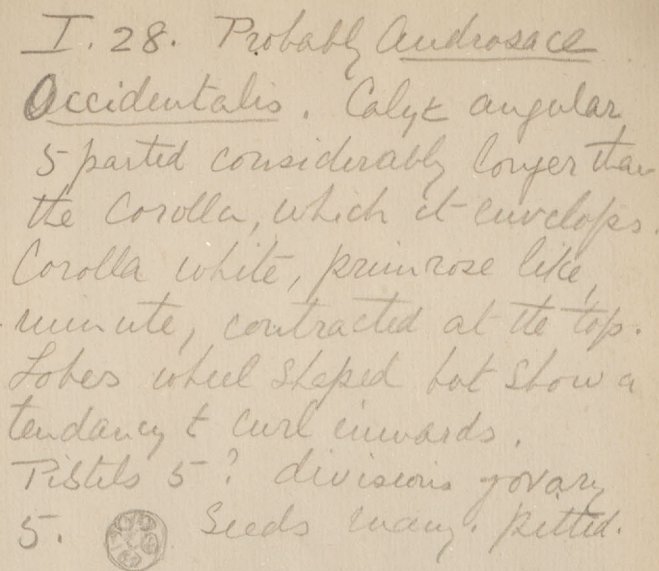 I. 28. Probably Androsace
Occidentalis. Calyx angular
5 parted considerably longer than
the Corolla, which it envelops.
Corolla white, primrose like,
minute, contracted at the top.
Lobes wheel shaped but show a
tendancy t curl inwards.
Pistils 5? divisions
5. Seeds many. pitted.